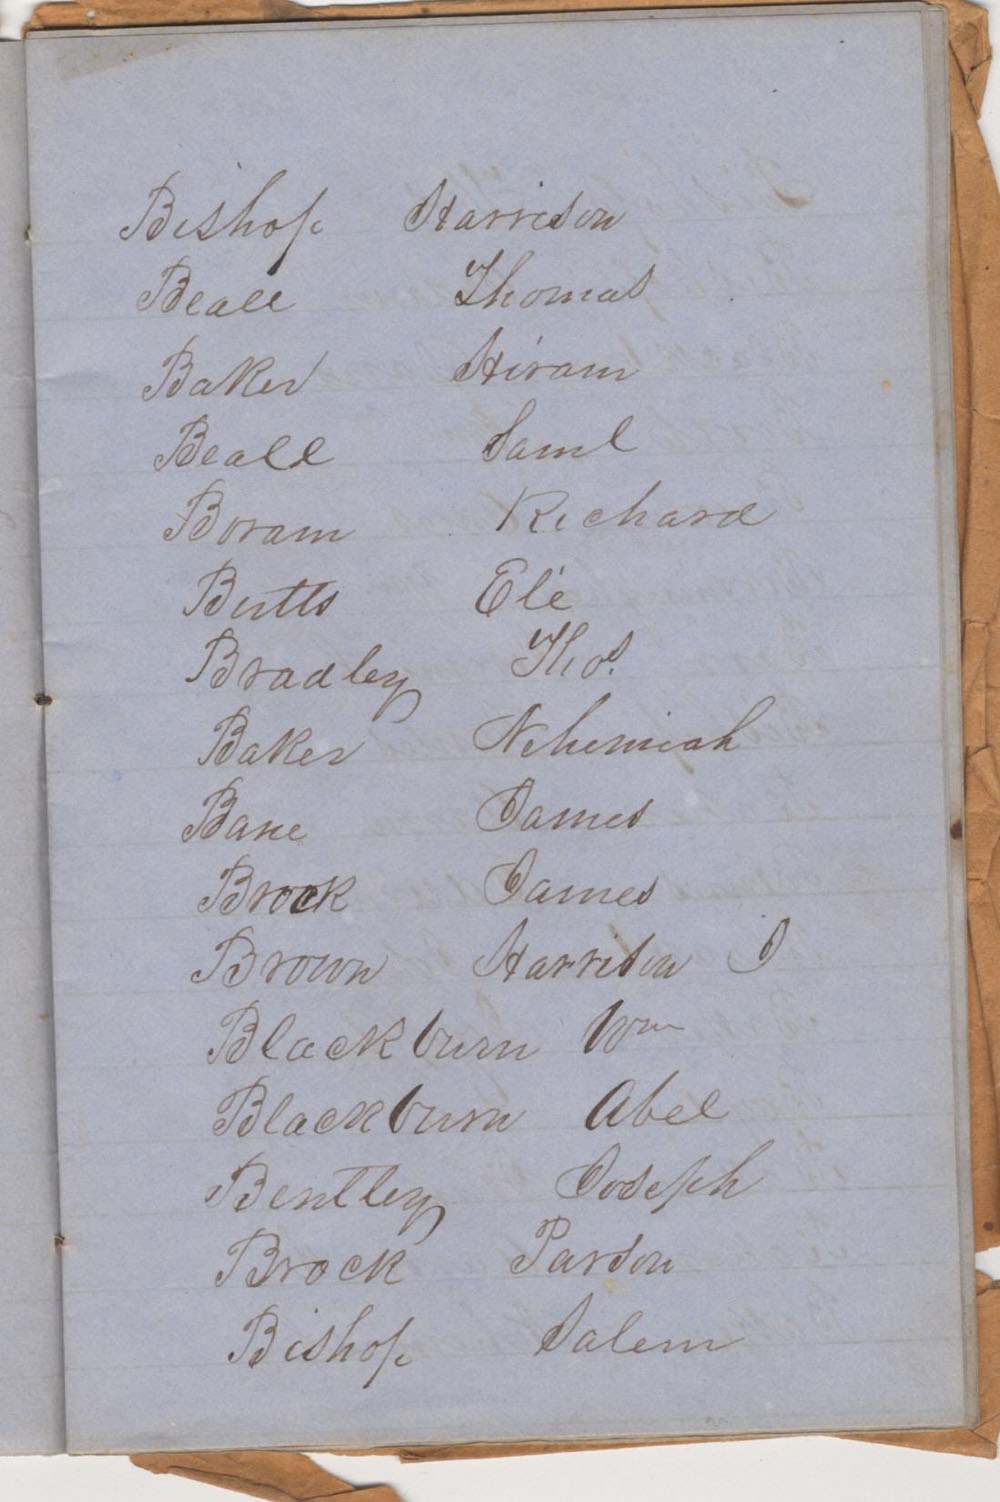 Bishop Harrison
Beall Thomas
Baker Hiram
Beall Saml
Boram Richard
Butts Eli
Bradley Thos.
Baker Nehemiah
Bane James
Brock James
Brown Harrison J
Blackburn Wm
Blackburn Abel
Bentley Joseph
Brock Parson
Bishop Salem